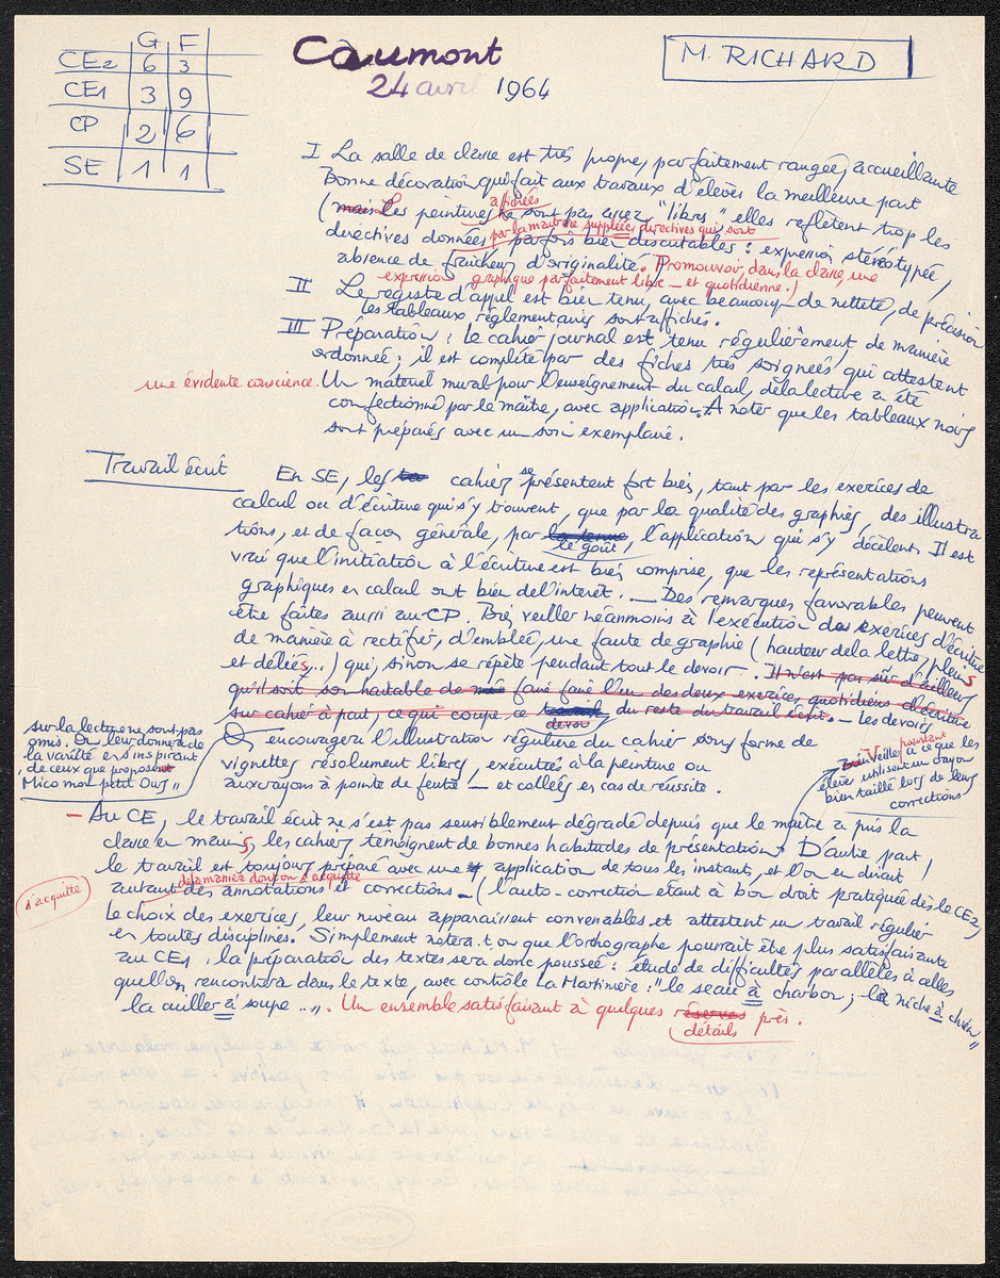 G F
CE2 6 3
CE1 3 9
CP 2 6
SE 1 1
Caumont
24 avril 1964
M. RICHARD
I La salle de classe est très propre, parfaitement rangée, accueillante
Bonne décoration qui fait aux travaux d'élèves la meilleure part
affichées
(mais Les peintures ne sont pas assez "libres" elles reflètent trop les
par la mauvaise directives qui sont
directives données parfois bien discutables : expression stéréotypée,
absence de fraîcheur d'originalité. Promouvoir, dans la classe, une
expression graphique parfaitement libre — et quotidienne.)
II Le registre d'appel est bien tenu, avec beaucoup de netteté, de précision
Les tableaux réglementaires sont affichés.
III Préparation : le cahier journal est tenu régulièrement de manière
ordonnée ; il est complété par des fiches très soignées qui attestent
une évidente conscience. Un matériel mural pour l'enseignement du calcul, de la lecture a été
confectionné par le maître, avec application. A noter que les tableaux noirs
sont préparés avec un soin exemplaire.
Travail écrit
En SE, les cahiers se présentent fort bien, tant par les exercices de
calcul ou d'écriture qui s'y trouvent, que par la qualité des graphies, des illustra
tions, et de façon générale, par la tenue l'application qui s'y décèlent. Il est
le goût,
vrai que l'initiation à l'écriture est bien comprise, que les représentations
graphiques en calcul ont bien de l'intérêt. — Des remarques favorables peuvent
être faites aussi au CP. Bien veiller néanmoins à l'exécution des exercices d'écriture
de manière à rectifier, d'emblée, une faute de graphie (hauteur de la lettre, pleins
et déliés,..) qui, sinon se répète pendant tout le devoir. Il n'est pas sûr d'ailleurs
qu'il soit souhaitable de faire faire l'un des deux exercices quotidiens d'écriture
sur cahier à part, ce qui coupe ce du reste du travail écrit. — Les devoirs
devoir
sur la lecture ne sont pas
omis. On leur donnera de
la variété en s'inspirant
de ceux que proposent
Mico mon petit Ours "
On encouragera l'illustration régulière du cahier sous forme de
vignettes résolument libres, exécutées à la peinture ou
aux crayons à pointe de feutre — et collées en cas de réussite.
pourtant
Veiller à ce que les
élèves utilisent un crayon
bien taillé lors de leurs
corrections
— Au CE, le travail écrit ne s'est pas sensiblement dégradé depuis que le maître a pris la
classe en mains, les cahiers témoignent de bonnes habitudes de présentation. D'autre part,
le travail est toujours préparé avec une application de tous les instants, et l'on en dirait
de la manière dont on s'acquitte
s'acquitte
autant des annotations et corrections — (l'auto-correction étant à bon droit pratiquée dès le CE2,
Le choix des exercices, leur niveau apparaissent convenables et attestent un travail régulier
en toutes disciplines. Simplement notera-t-on que l'orthographe pourrait être plus satisfaisante
au CE1 : la préparation des textes sera donc poussée : étude de difficultés parallèles à celles
qu'on rencontrera dans le texte, avec contrôle La Martinière : "le seau à charbon ; la niche à chien
la cuiller à soupe ...". Un ensemble satisfaisant à quelques réserves près.
détails